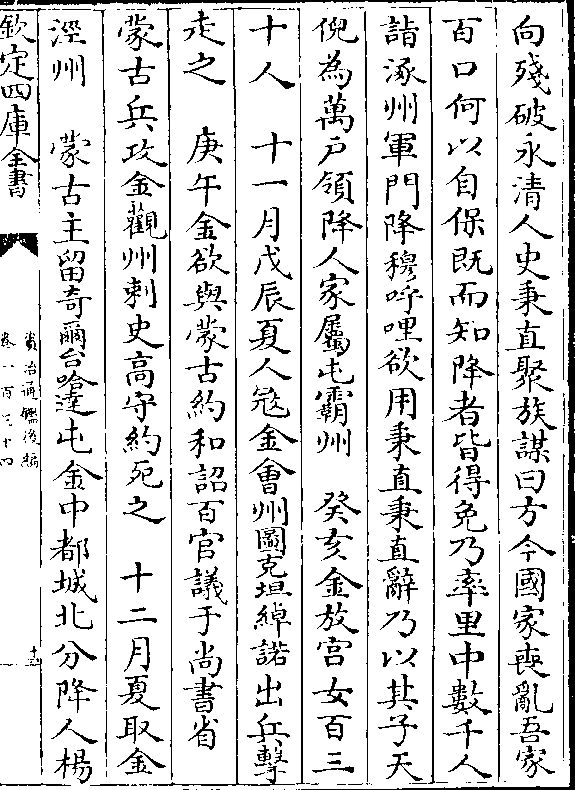 向殘破永清人史秉直聚族謀曰方今國家喪亂吾家
百口何以自保既而知降者皆得免乃率里中數千人
詣涿州軍門降穆呼哩欲用秉直秉直辭乃以其子天
倪為萬戶領降人家屬屯霸州 癸亥金放宮女百三
十人 十一月戊辰夏人寇金會州圖克坦綽諾出兵擊
走之 庚午金欲與蒙古約和詔百官議于尚書省
蒙古兵攻金觀州刺史高守約死之 十二月夏取金
涇州 蒙古主留奇爾台哈達屯金中都城北分降人楊
欽定四庫全書
資治通鑑後編
卷一百三十四